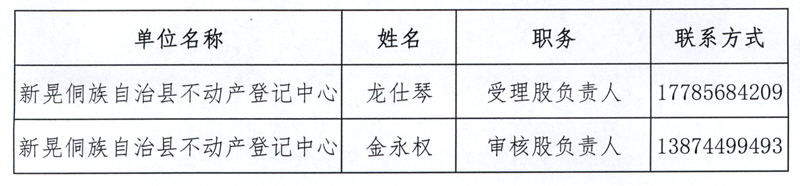 单位名称 姓名 职务 联系方式
新晃侗族自治县不动产登记中心 龙仕琴 受理股负责人 17785684209
新晃侗族自治县不动产登记中心 金永权 审核股负责人 13874499493